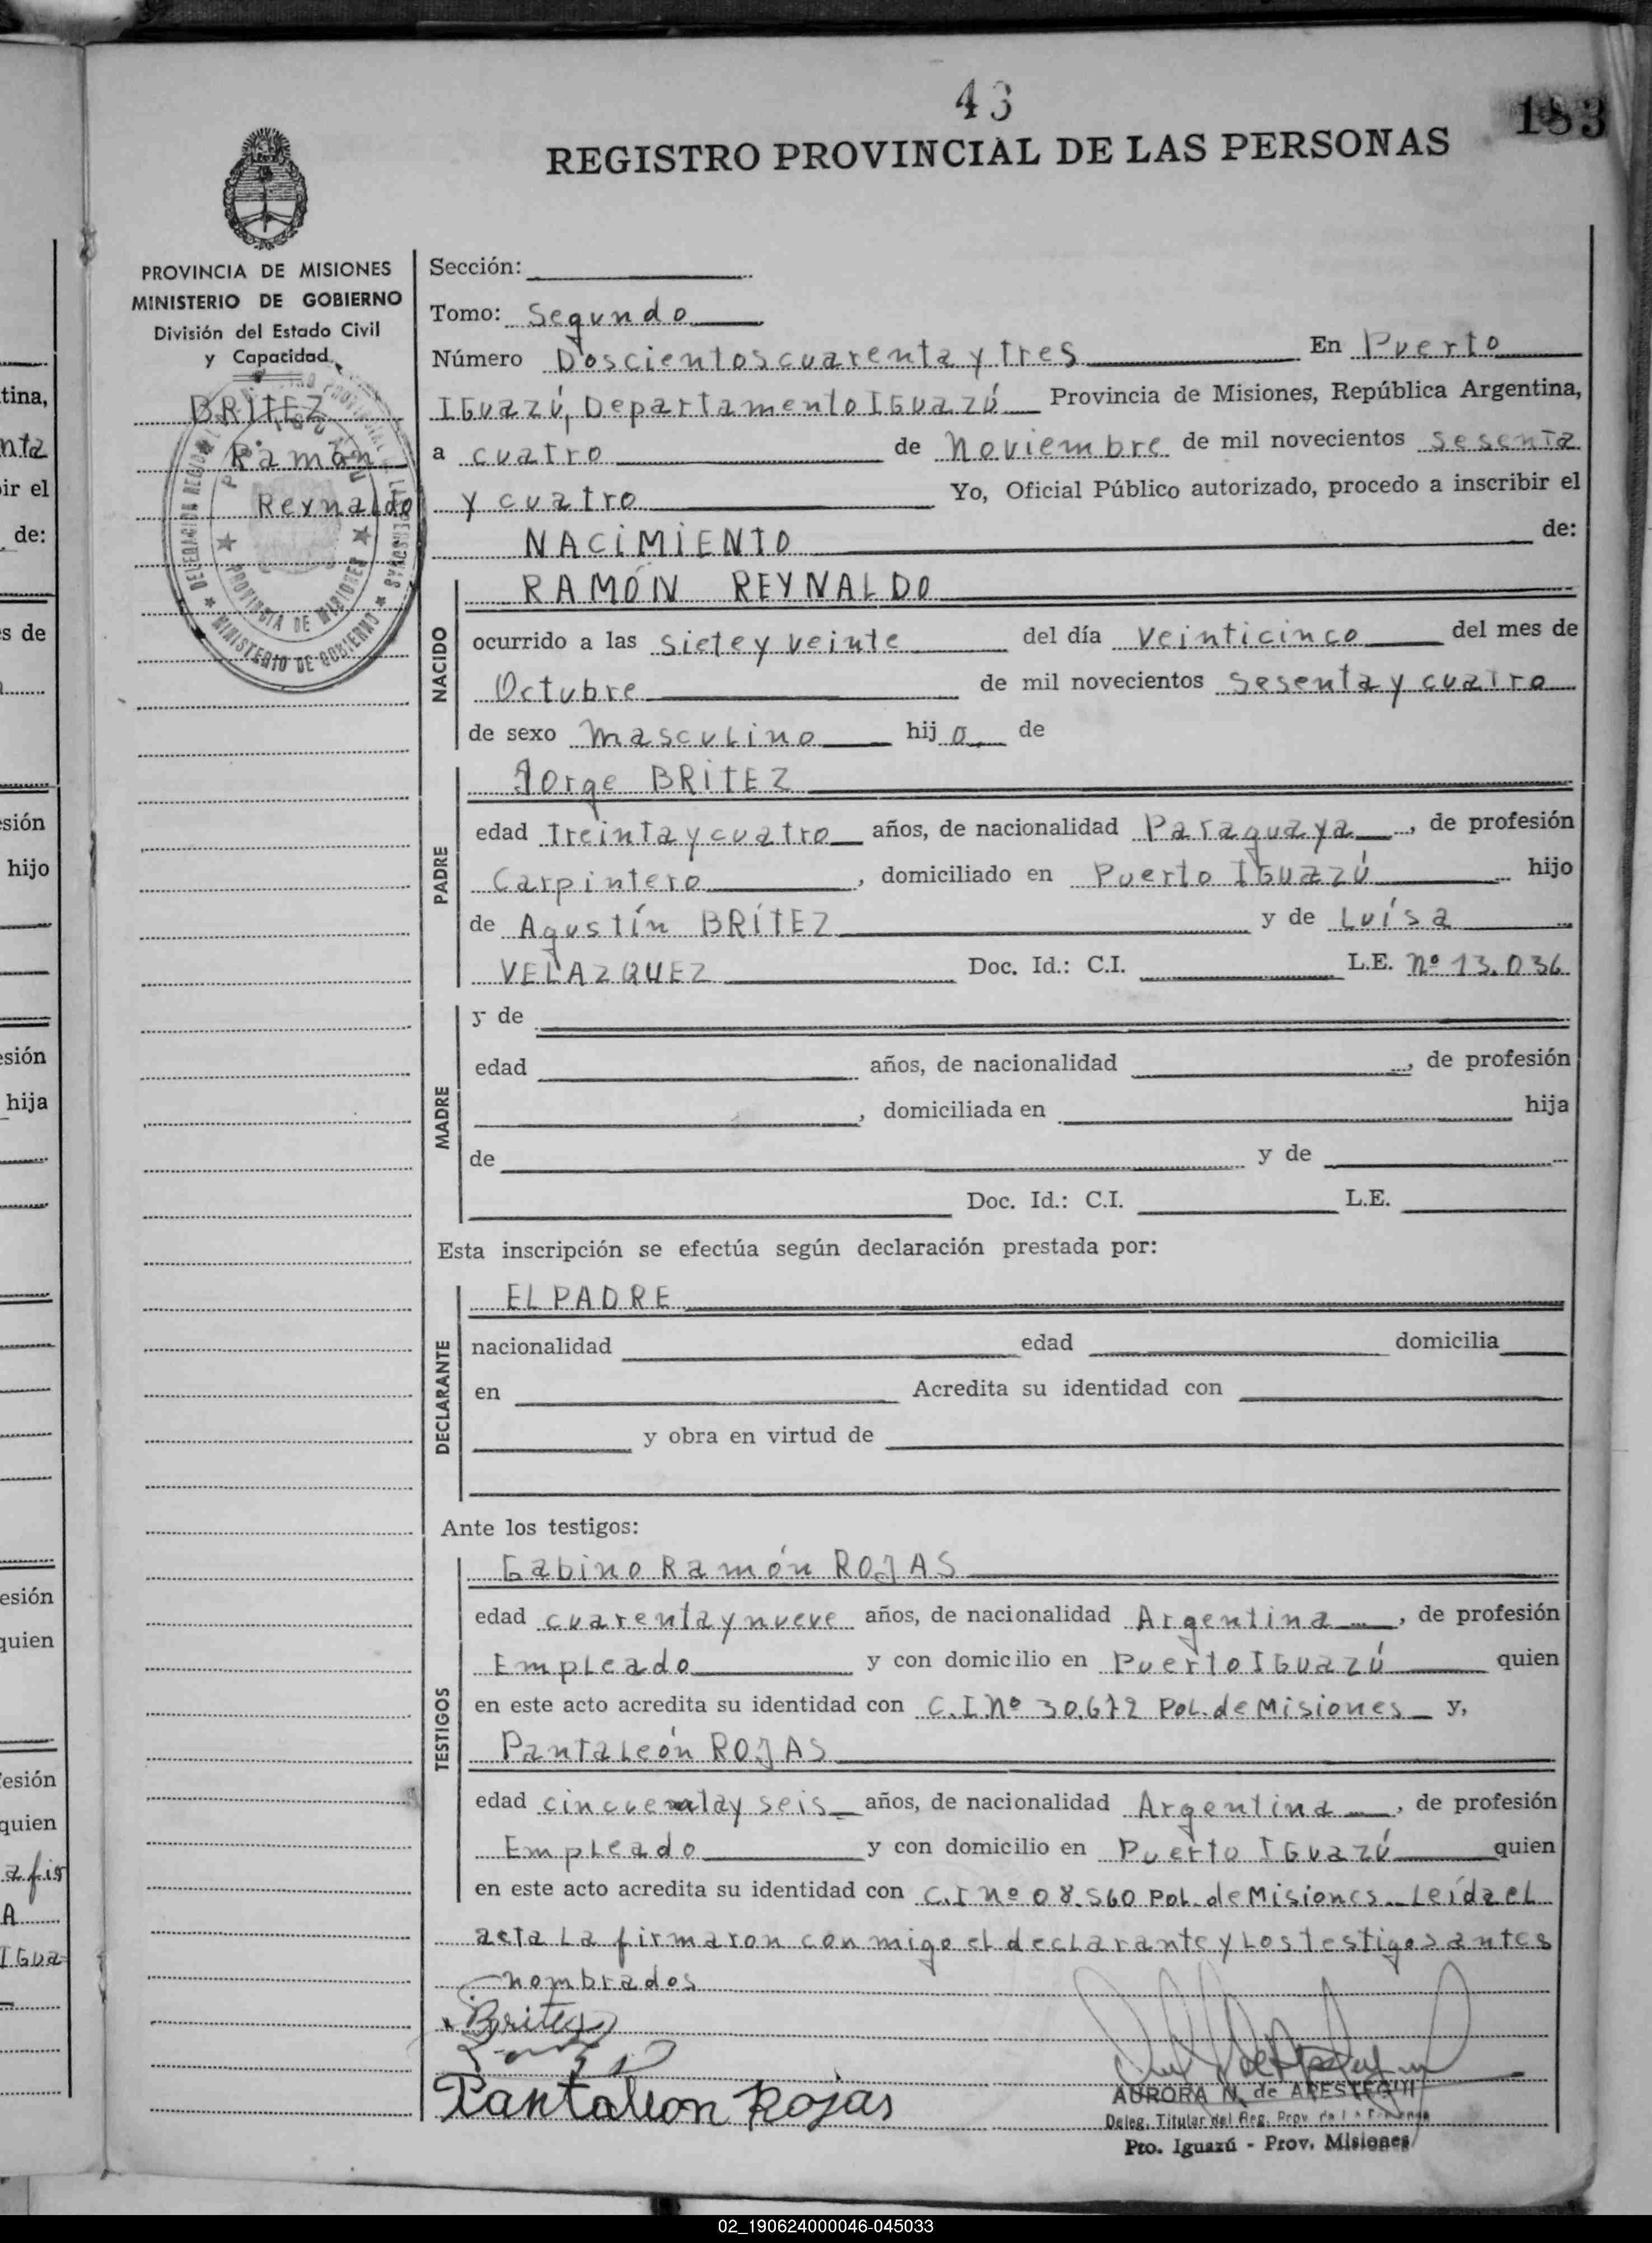 43
183
REGISTRO PROVINCIAL DE LAS PERSONAS
PROVINCIA DE MISIONES
MINISTERIO DE GOBIERNO
División del Estado Civil
y Capacidad
BRÍTEZ
Ramón
Reynaldo
MINISTERIO DE GOBIERNO
PROVINCIA DE MISIONES
Sección:
Tomo: Segundo
Número Doscientos cuarenta y tres En Puerto
IGuazú, Departamento IGuazú Provincia de Misiones, República Argentina,
a cuatro de Noviembre de mil novecientos sesenta
y cuatro Yo, Oficial Público autorizado, procedo a inscribir el
NACIMIENTO de:
NACIDO
RAMÓN REYNALDO
ocurrido a las siete y veinte del día veinticinco del mes de
Octubre de mil novecientos sesenta y cuatro
de sexo masculino hij o de
PADRE
Jorge BRÍTEZ
edad treinta y cuatro años, de nacionalidad Paraguaya, de profesión
Carpintero, domiciliado en Puerto IGuazú hijo
de Agustín BRÍTEZ y de Luísa
VELAZQUEZ Doc. Id.: C.I. L.E. nº 13.036
MADRE
y de
edad años, de nacionalidad , de profesión
, domiciliada en hija
de y de
Doc. Id.: C.I. L.E.
Esta inscripción se efectúa según declaración prestada por:
DECLARANTE
EL PADRE
nacionalidad edad domicilia
en Acredita su identidad con
y obra en virtud de
Ante los testigos:
TESTIGOS
Gabino Ramón ROJAS
edad cuarenta y nueve años, de nacionalidad Argentina, de profesión
Empleado y con domicilio en Puerto IGuazú quien
en este acto acredita su identidad con C.I. nº 30.672 Pol. de Misiones y,
Pantaleón ROJAS
edad cincuenta y seis años, de nacionalidad Argentina, de profesión
Empleado y con domicilio en Puerto IGuazú quien
en este acto acredita su identidad con C.I nº 08.560 Pol. de Misiones Leída el
acta la firmaron conmigo el declarante y los testigos antes
nombrados
Britez
Pantaleon Rojas
AURORA N. de APESTEGUI
Deleg. Titular del Reg. Prov. de
Pto. Iguazú - Prov. Misiones
02_190624000046-045033